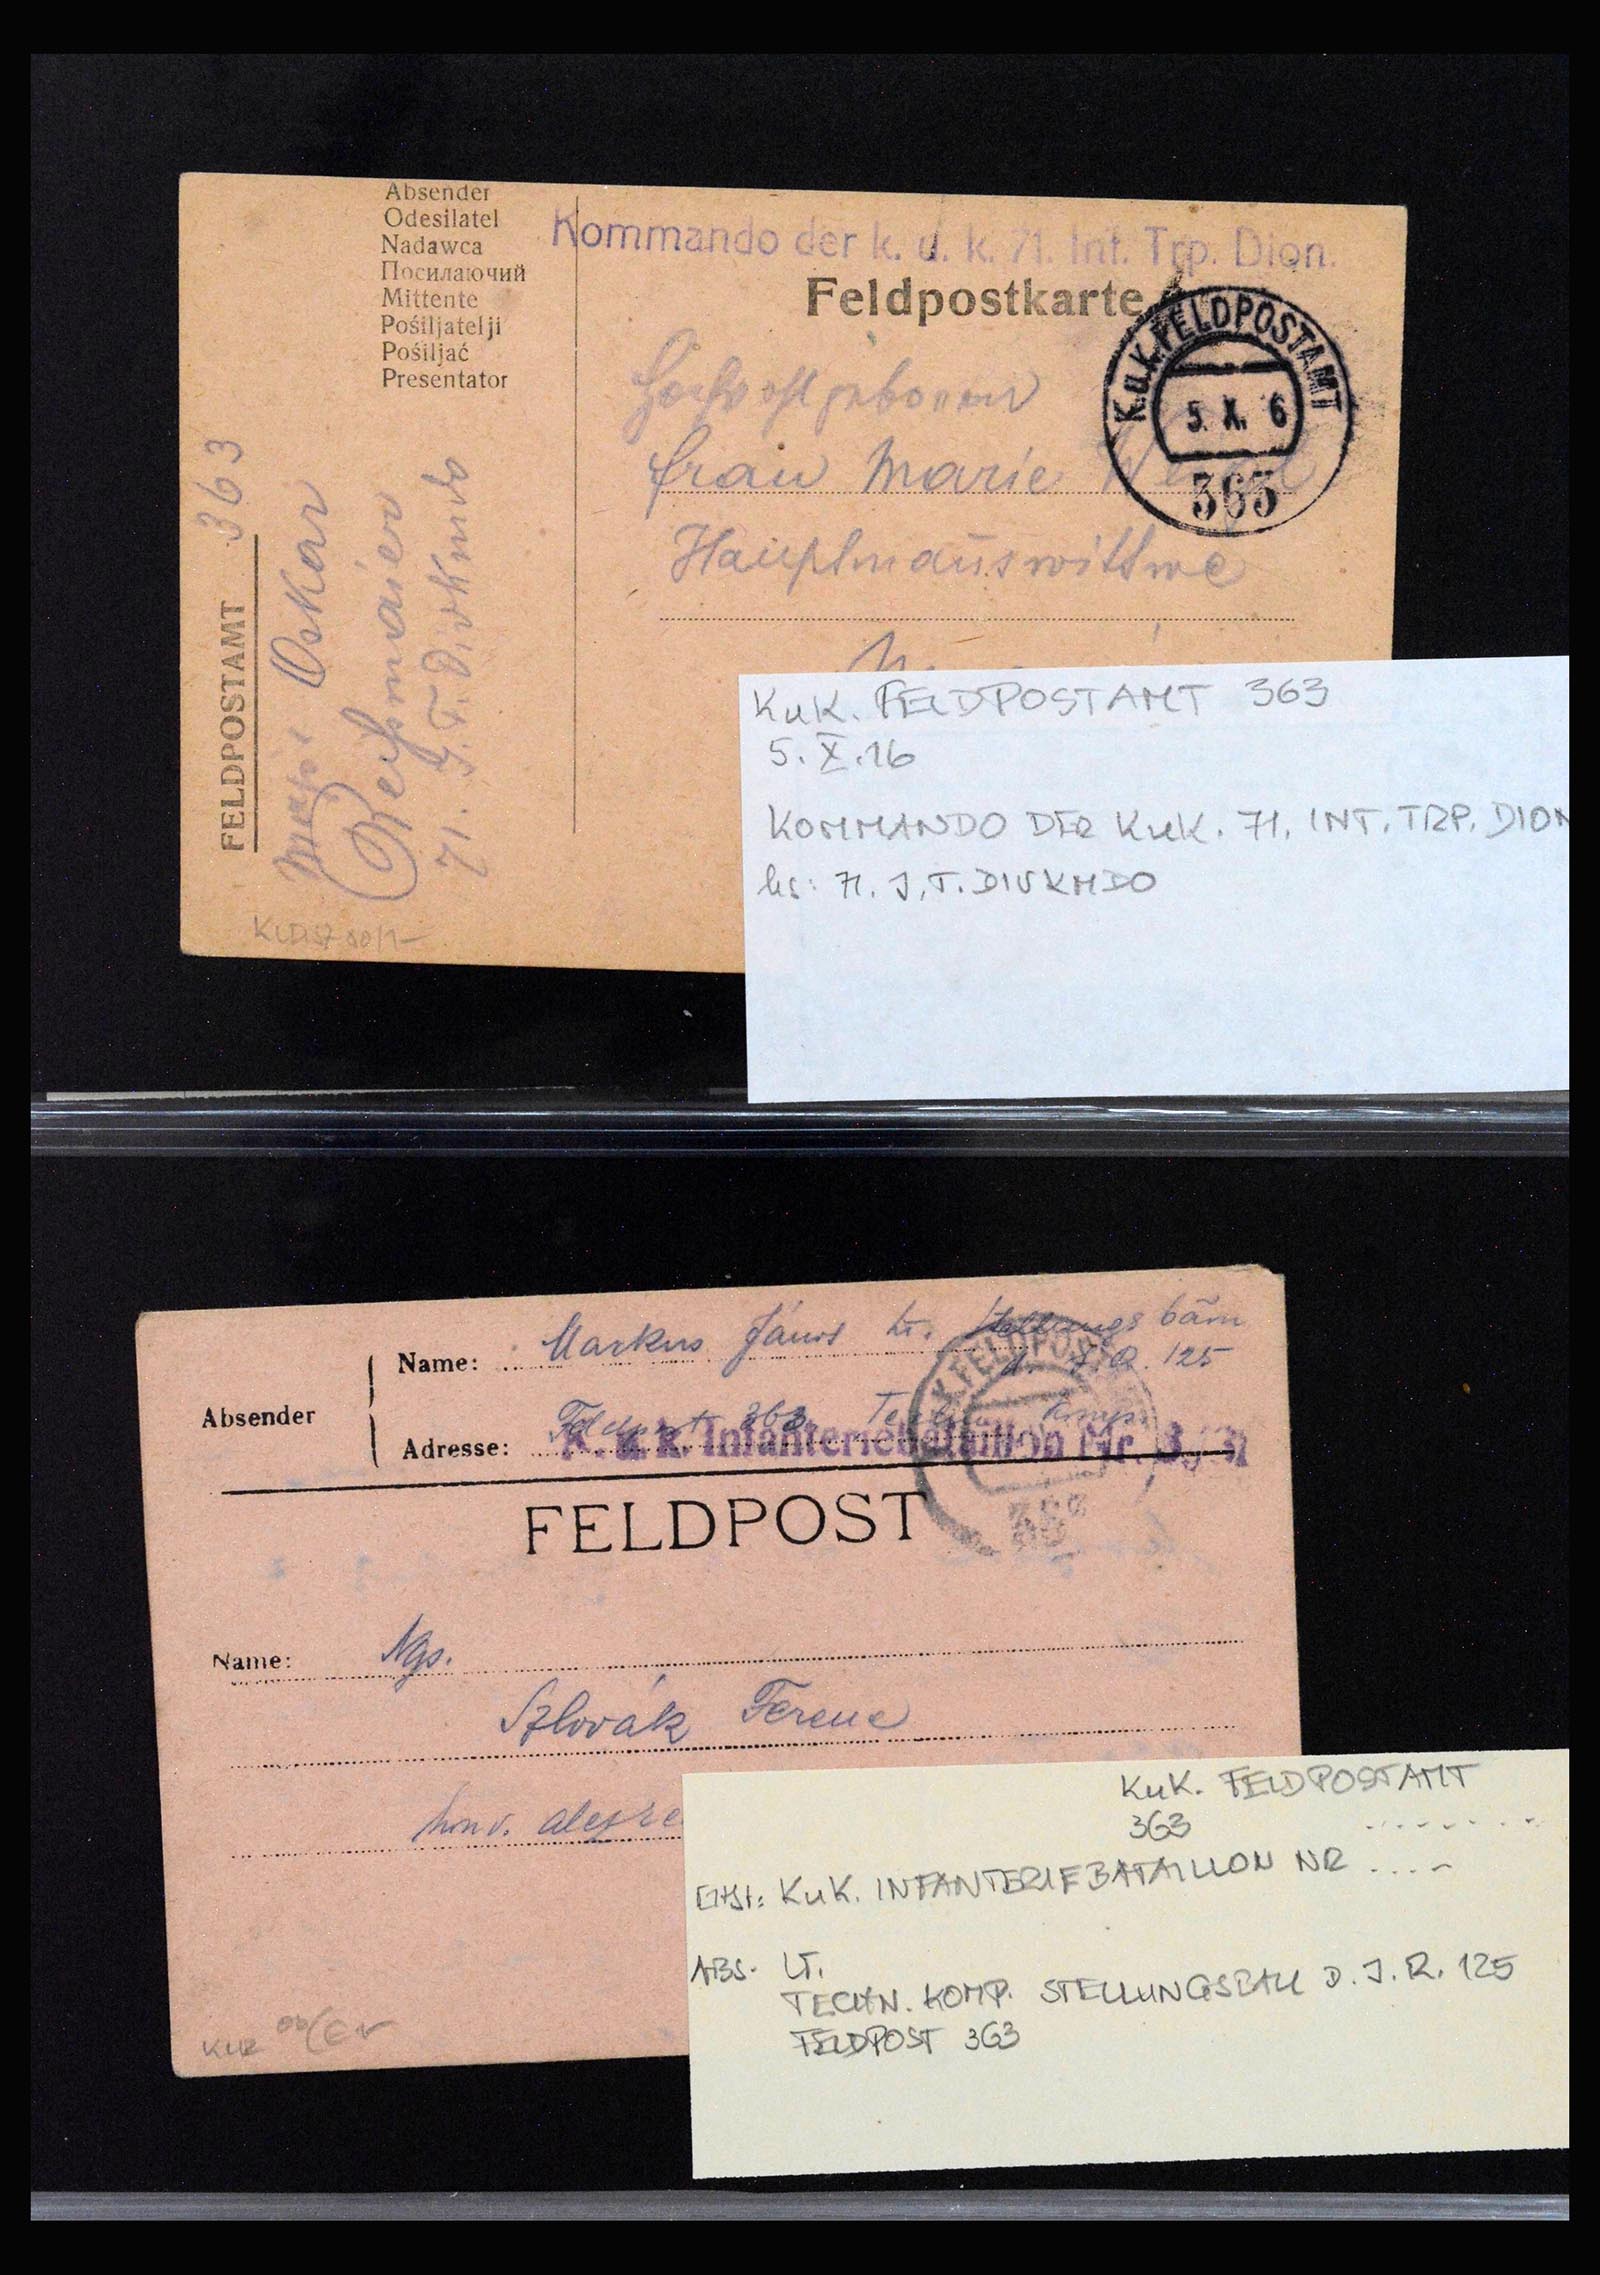 Absender
Odesilatel
Nadawca
Посилаючий
Mittente
Pośiljatelji
Pośiljać
Presentator
Kommando der k. u. k. 71. Int. Trp. Dion.
Feldpostkarte
K.u.K. FELDPOSTAMT
5. X. 6
363
frau Marie
Hauptmannswittwe
FELDPOSTAMT 363
Oskar
71. J. T. Divkmdo
KuK. FELDPOSTAMT 363
5. X. 16
KOMMANDO DER KuK. 71. INT. TRP. DION
hs: 71. J. T. DIVKMDO
Absender
Name: Markus János Lt. Stellungsbau
d. J. R. 125
Adresse: Feldpost 363 Techn. Komp.
K. u. k. Infanteriebataillon Nr.
K. FELDPOST
363
FELDPOST
Name: Ngs.
Szlovák Ferenc
honv.
KuK. FELDPOSTAMT
363 . . . . . . . .
KuK. INFANTERIEBATAILLON NR . . . .
ABS. LT.
TECHN. KOMP. STELLUNGSBAU D. J. R. 125
FELDPOST 363